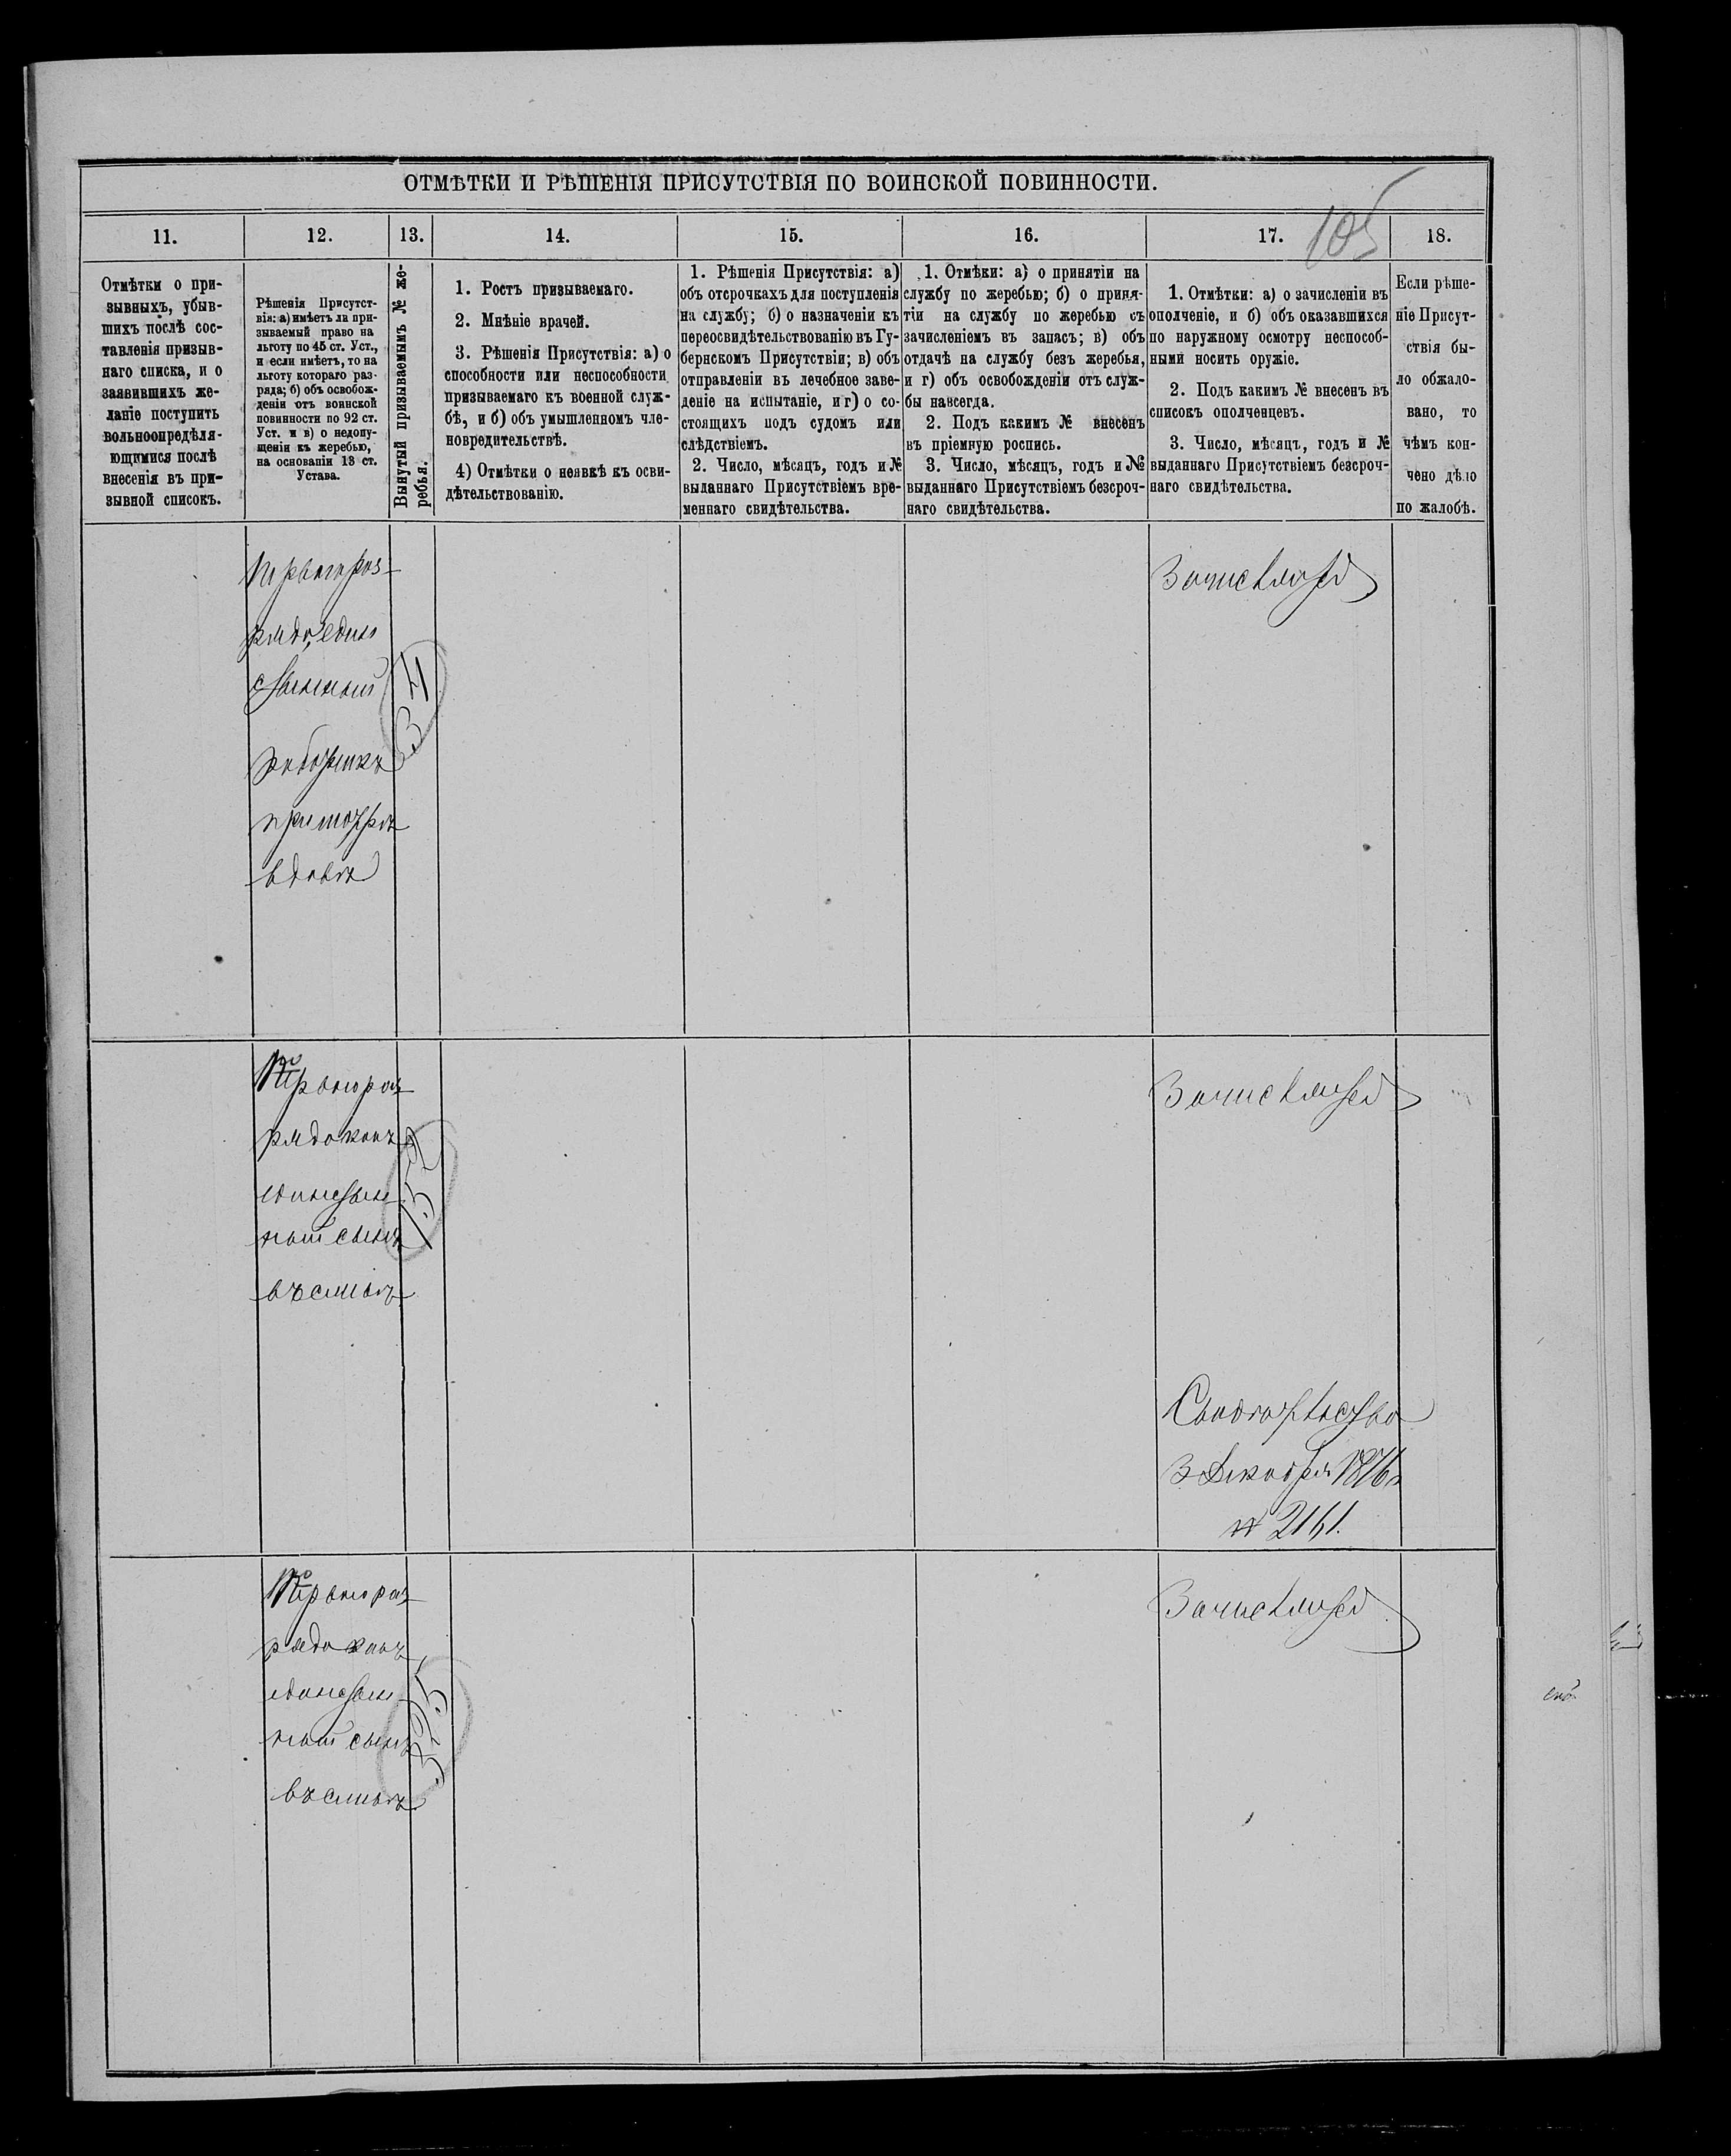 ОТМѢТКИ И РѢШЕНІЯ ПРИСУТСТВІЯ ПО ВОИНСКОЙ ПОВИННОСТИ.
105
11. 12. 13. 14. 15. 16. 17. 18.
Отмѣтки о при-
зывныхъ, убыв-
шихъ послѣ сос-
тавленія призыв-
наго списка, и о
заявившихъ же-
ланіе поступить
вольноопредѣля-
ющимися послѣ
внесенія въ при-
зывной списокъ.
Рѣшенія Присутст-
вія: а) имѣетъ ли при-
зываемый право на
льготу по 45 ст. Уст.,
и если имѣетъ, то на
льготу котораго раз-
ряда; б) объ освобож-
деніи отъ воинской
повинности по 92 ст.
Уст. и в) о недопу-
щеніи къ жеребью,
на основаніи 13 ст.
Устава.
Вынутый призываемымъ № же-
ребья.
1. Ростъ призываемаго.
2. Мнѣніе врачей.
3. Рѣшенія Присутствія: а) о
способности или неспособности
призываемаго къ военной служ-
бѣ, и б) объ умышленномъ чле-
новредительствѣ.
4) Отмѣтки о неявкѣ къ осви-
дѣтельствованію.
1. Рѣшенія Присутствія: а)
объ отсрочкахъ для поступленія
на службу; б) о назначеніи къ
переосвидѣтельствованію въ Гу-
бернскомъ Присутствіи; в) объ
отправленіи въ лечебное заве-
деніе на испытаніе, и г) о со-
стоящихъ подъ судомъ или
слѣдствіемъ.
2. Число, мѣсяцъ, годъ и №
выданнаго Присутствіемъ вре-
меннаго свидѣтельства.
1. Отмѣки: а) о принятіи на
службу по жеребью; б) о приня-
тіи на службу по жеребью съ
зачисленіемъ въ запасъ; в) объ
отдачѣ на службу безъ жеребья,
и г) объ освобожденіи отъ служ-
бы навсегда.
2. Подъ какимъ № внесенъ
въ пріемную роспись.
3. Число, мѣсяцъ, годъ и №
выданнаго Присутствіемъ безсроч-
наго свидѣтельства.
1. Отмѣтки: а) о зачисленіи въ
ополченіе, и б) объ оказавшихся
по наружному осмотру неспособ-
ными носить оружіе.
2. Подъ какимъ № внесенъ въ
списокъ ополченцевъ.
3. Число, мѣсяцъ, годъ и №
выданнаго Присутствіемъ безсроч-
наго свидѣтельства.
Если рѣше-
ніе Присут-
ствія бы-
ло обжало-
вано, то
чѣмъ кон-
чено дѣло
по жалобѣ.
Перваго раз-
ряда, един
ственный
работникъ
при матери
вдовѣ
34
Зачисляется
Перваго раз-
ряда какъ
единствен-
ный сынъ
въ семьѣ
152
Зачисляется
Свидѣтельство
3 Декабря 1876 г.
№ 2161.
Перваго раз-
ряда какъ
единствен-
ный сынъ
въ семьѣ
325
Зачисляется